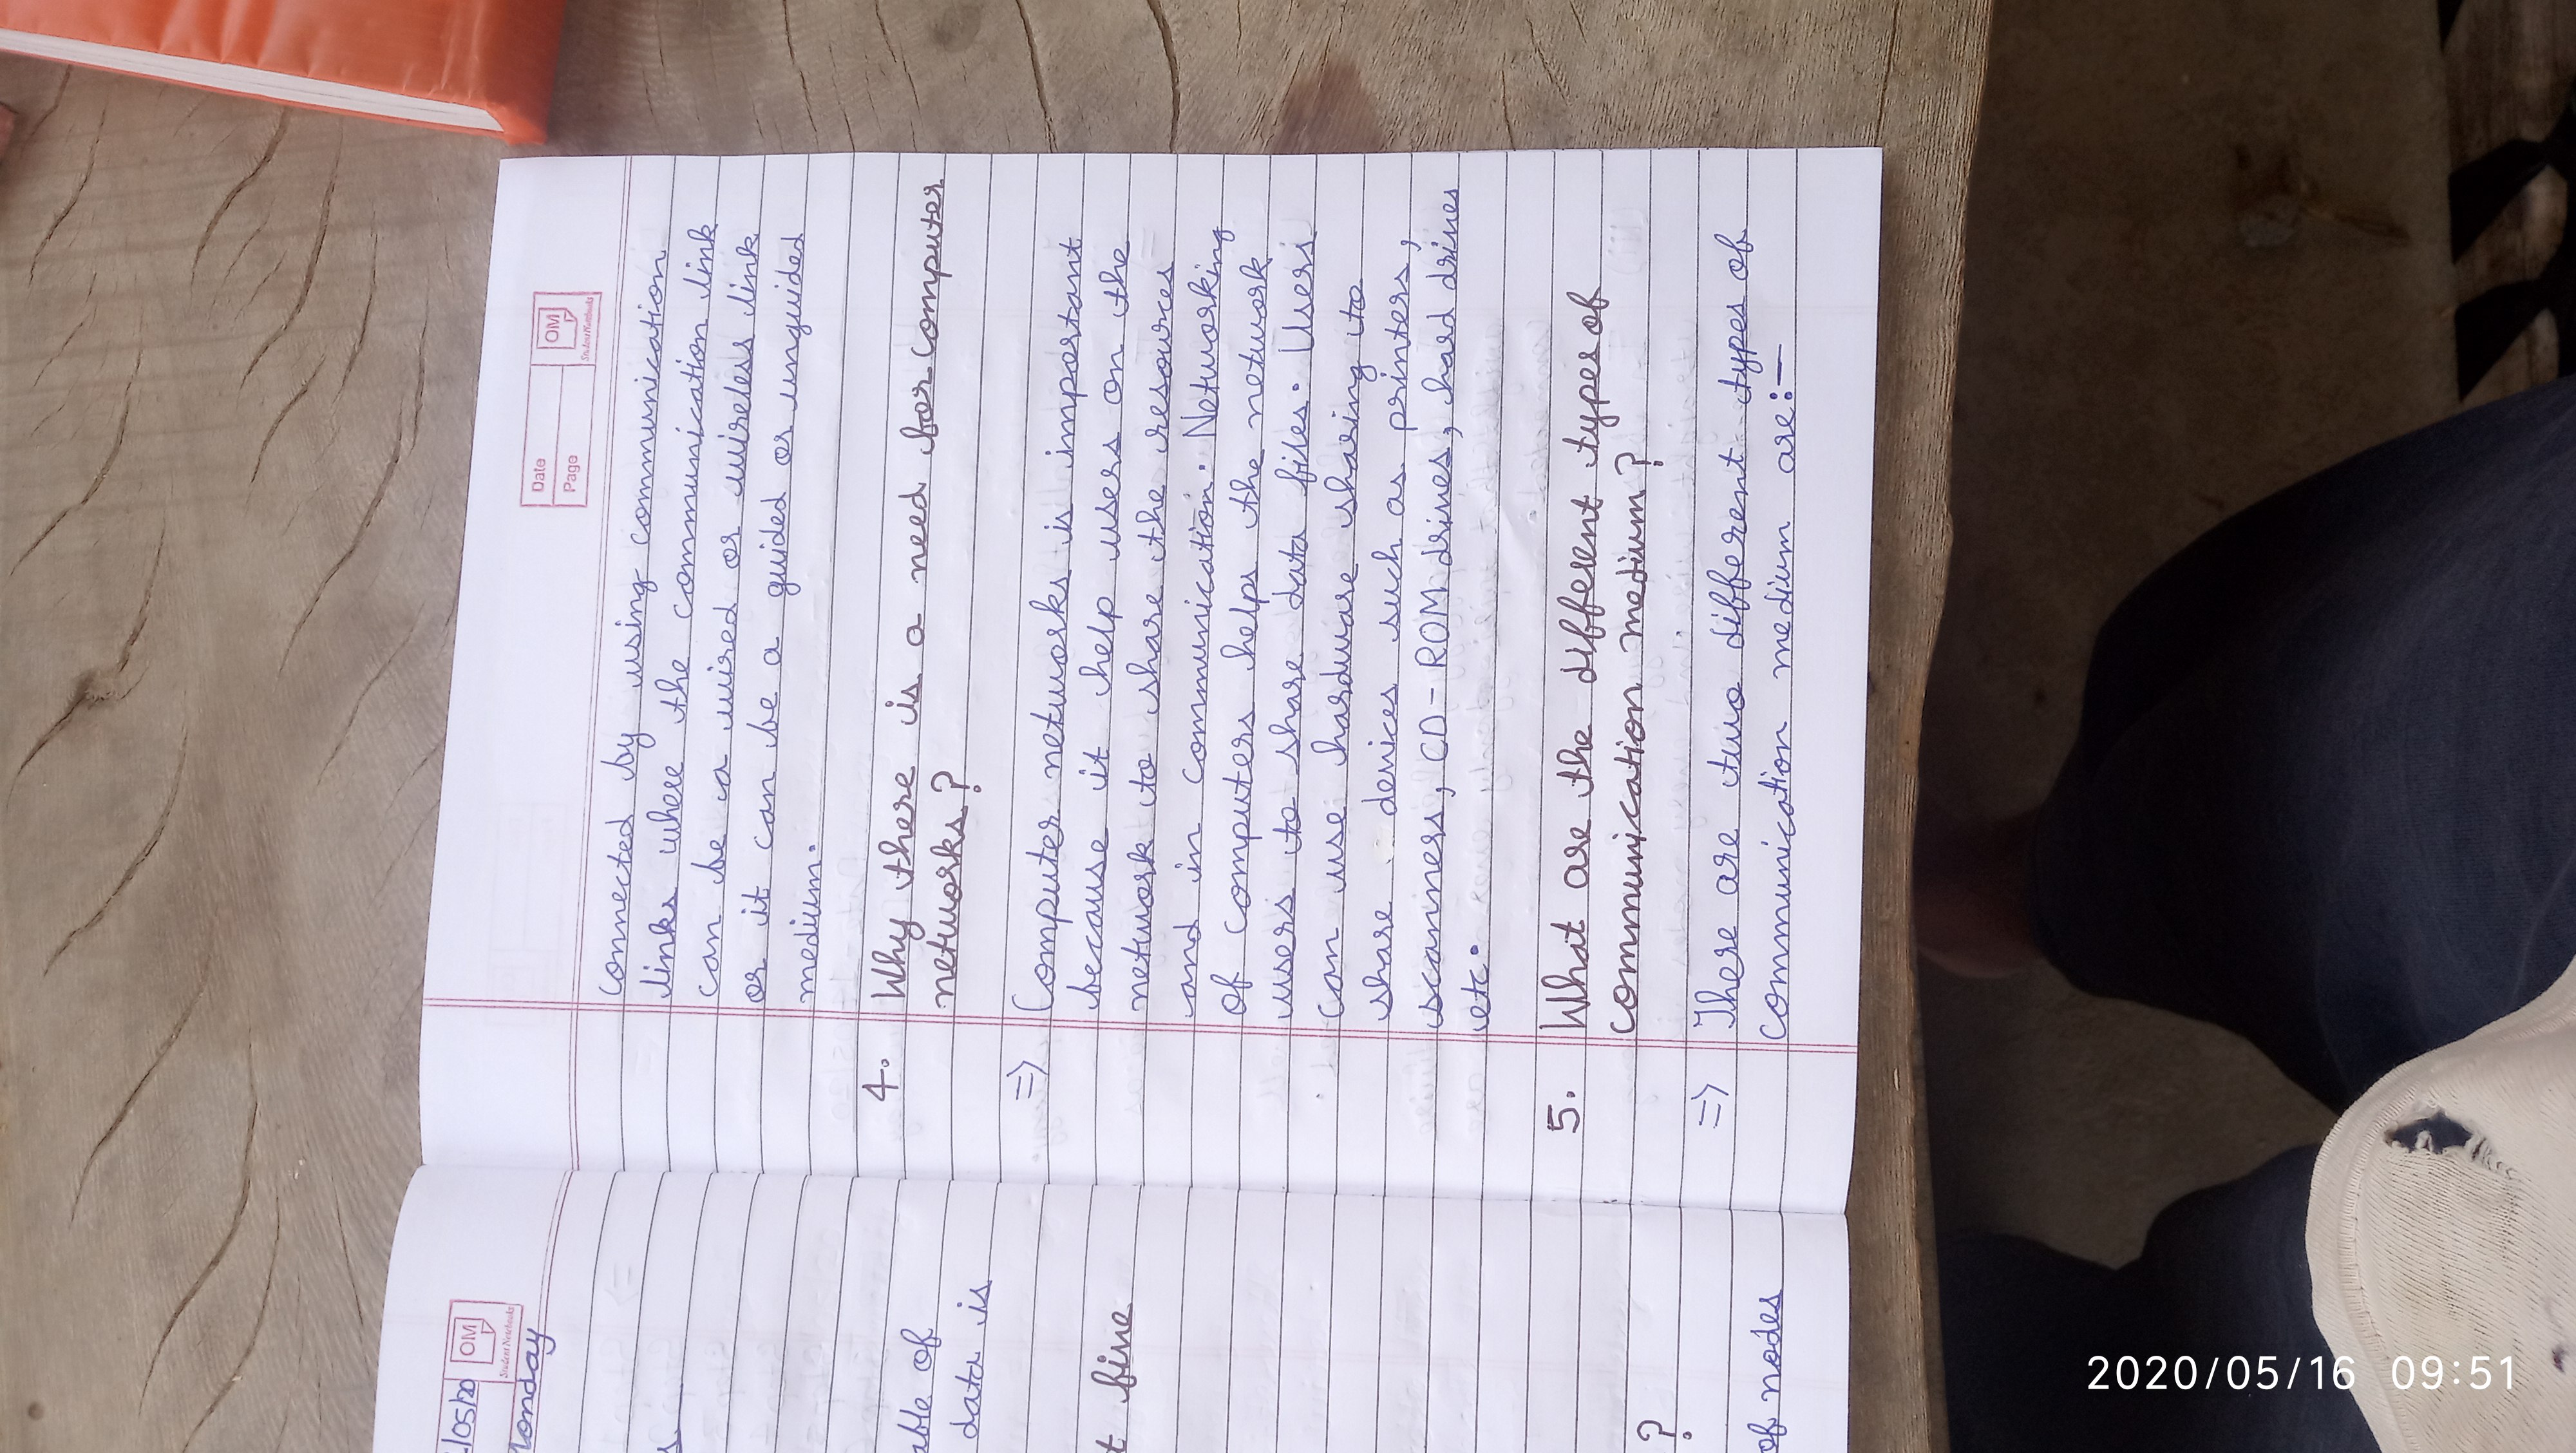 ./05/20
Monday
OM
Student Notebooks
able of
data is
t five
?
of nodes
Date
Page
OM
Student Notebooks
connected by using communication
links where the communication link
can be a wired or wireless link
or it can be a guided or unguided
medium.
4. Why there is a need for computer
networks?
=> Computer networks is important
because it help users on the
network to share the resources
and in communication. Networking
of computers helps the network
users to share data files. Users
can use hardware sharing to
share devices such as printers,
scanners, CD-ROM drives, hard drives
etc.
5. What are the different types of
communication medium?
=> There are two different types of
communication medium are:-
2020/05/16 09:51